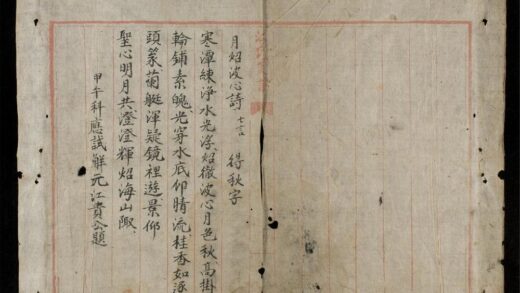 月炤波心詩 七言 得秋字
寒潭練淨水光浮炤徹波心月色秋高掛
輪鋪素魄光穿水底仰晴流桂香如逐
頭艇渾疑鏡裡遊景仰
聖心明月共澄澄輝炤海山陬
甲午科應試解元江貴公題